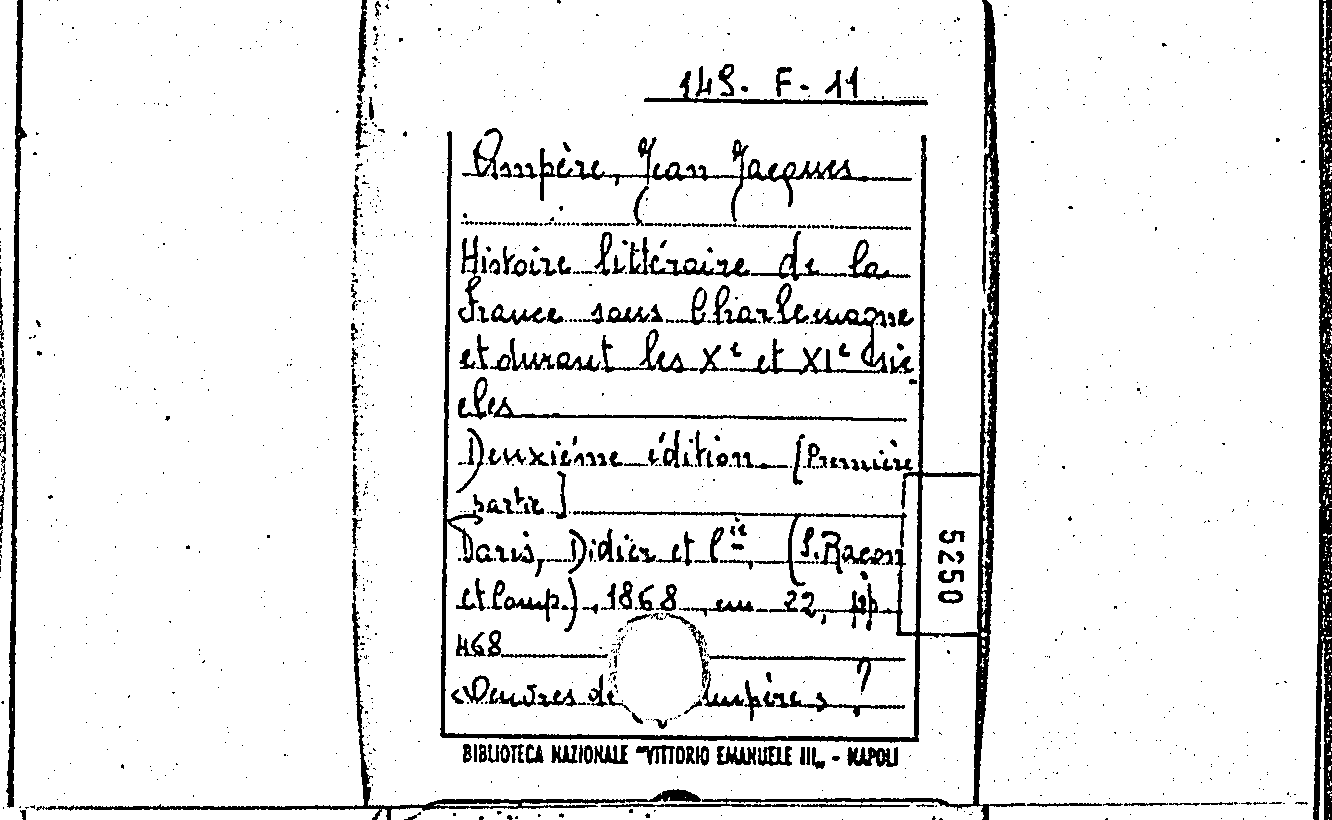 149. F. 11
Ampère, Jean Jacques
Histoire littéraire de la
France sous Charlemagne
et durant les Xe et XIe siè
cles
Deuxiéme édition. [Première
partie]
Paris, Didier et Cie, (S. Raçon
et Comp.), 1868, cm 22, pp.
468
«Oeuvres de mpère»
5250
BIBLIOTECA NAZIONALE "VITTORIO EMANUELE III„ - NAPOLI